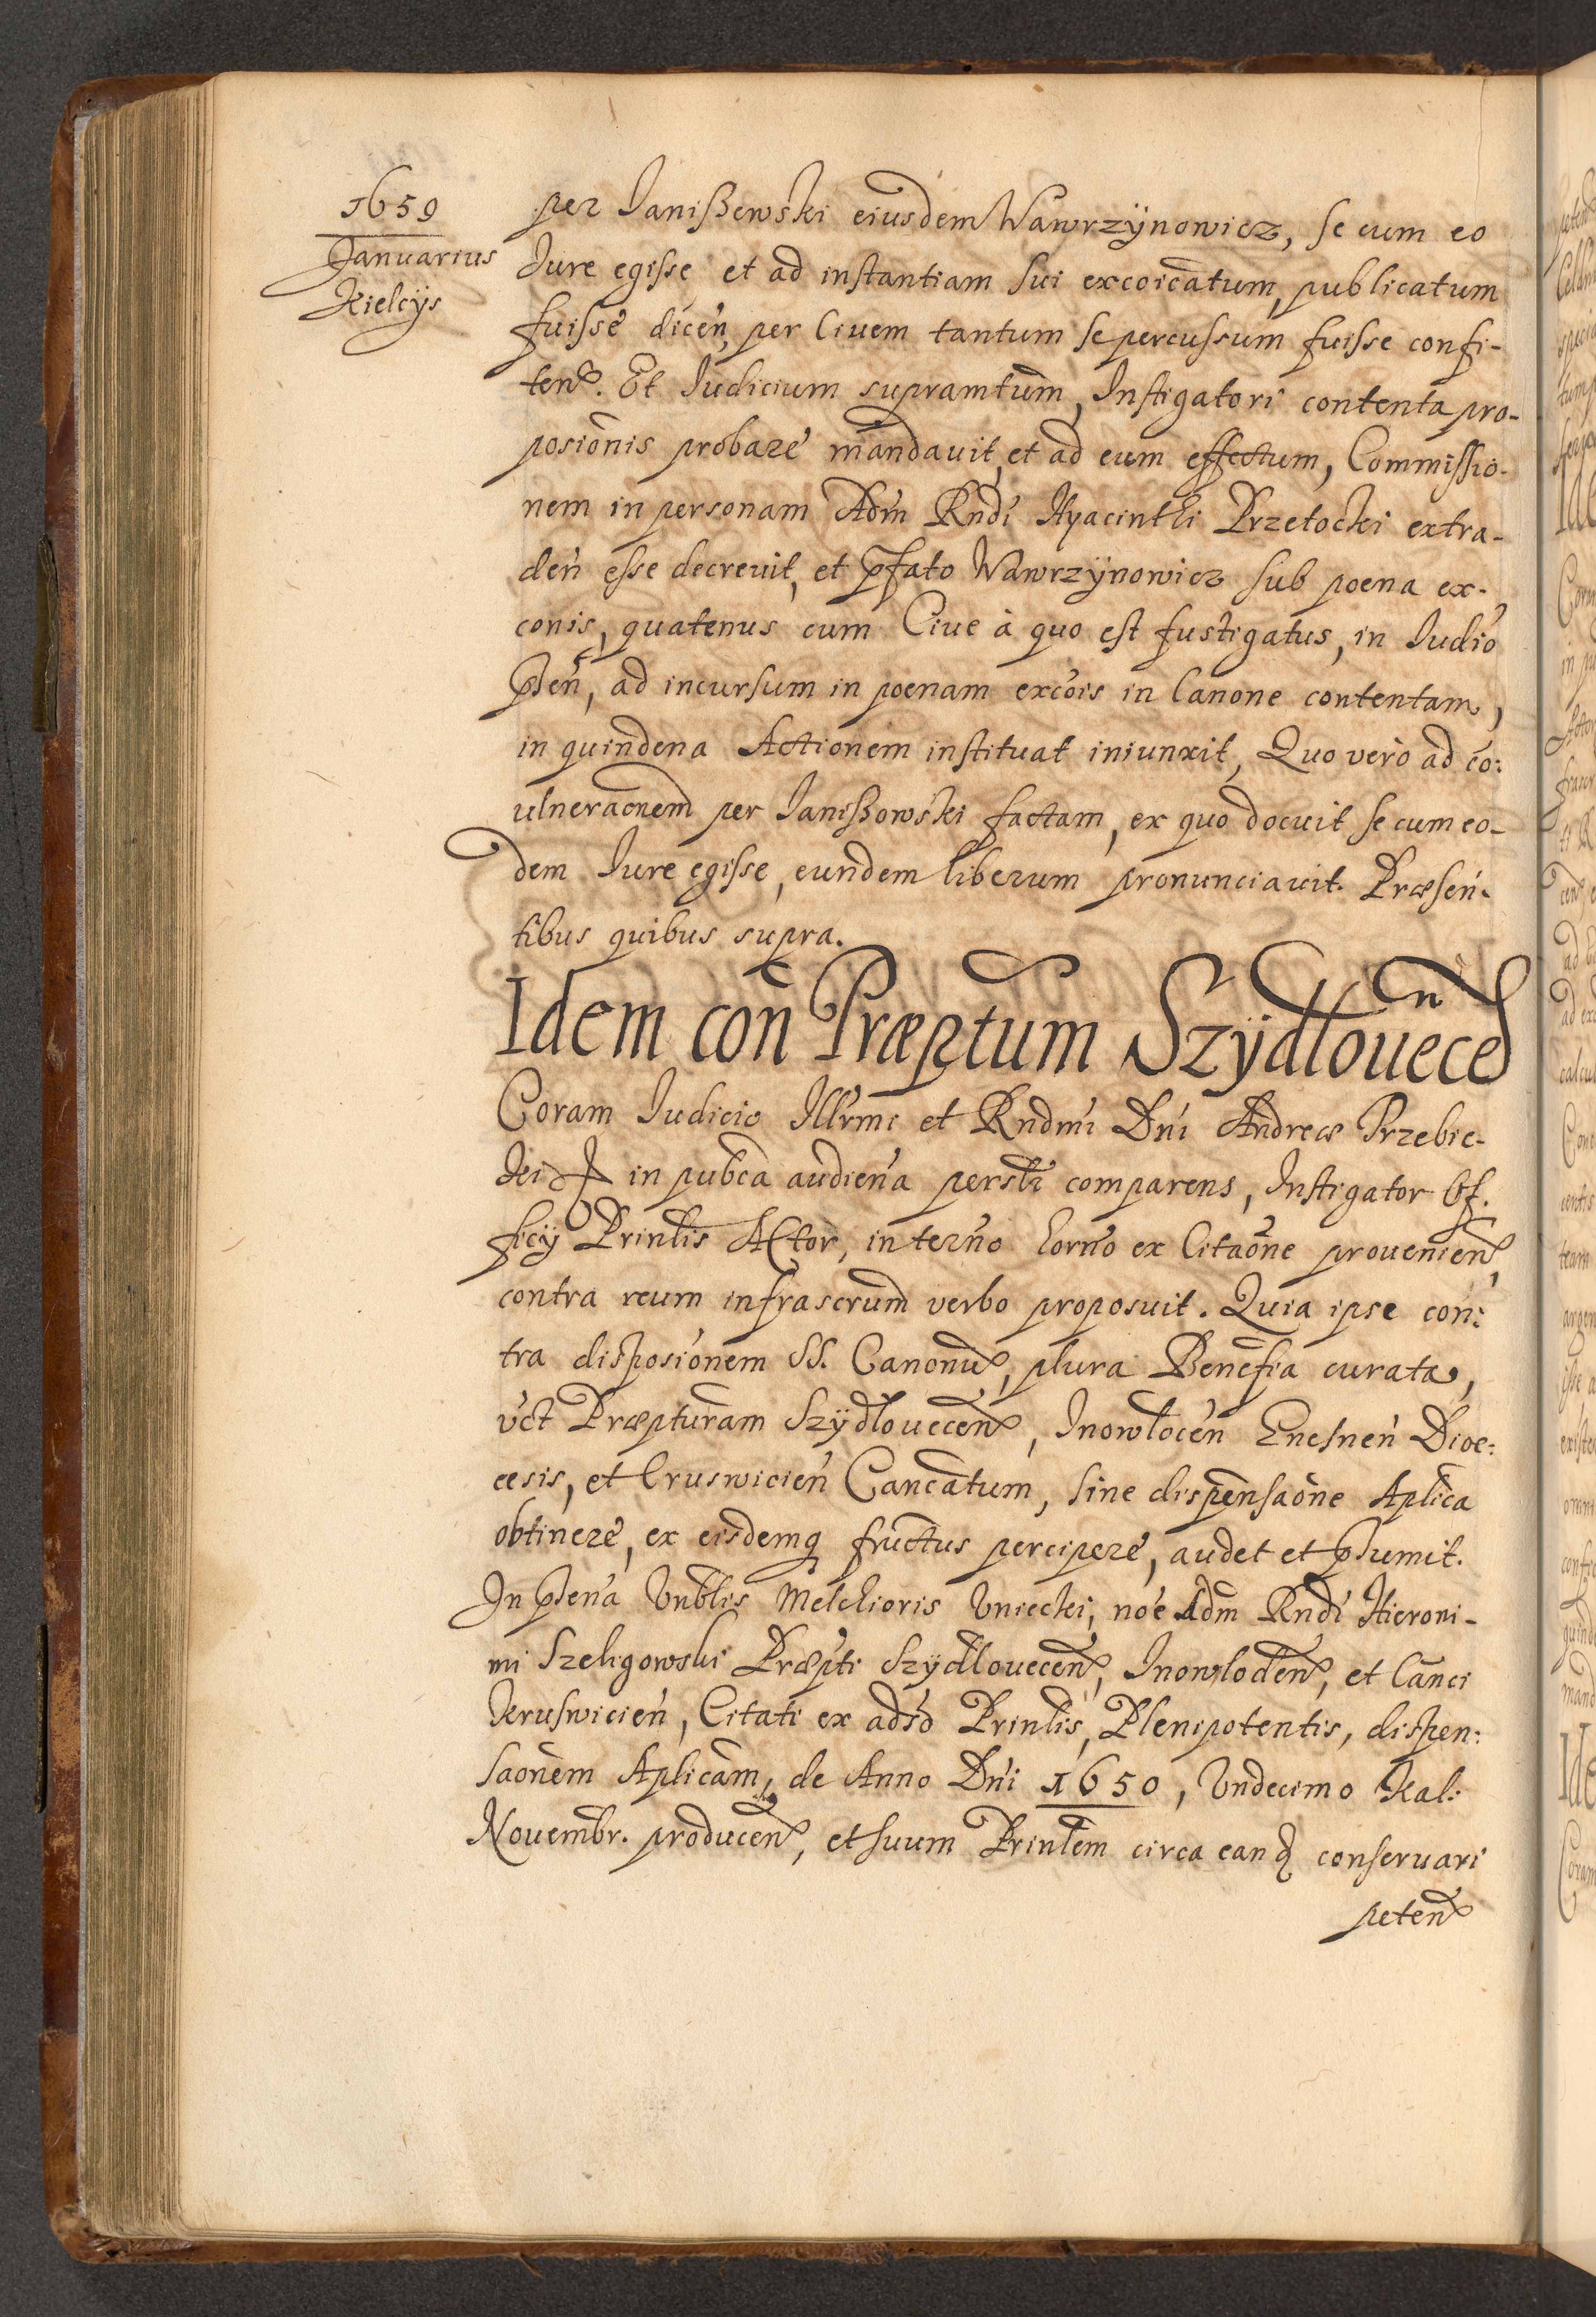 1659
Januarius
Kielcÿs
per Janißewski eiusdem Wawrzÿnowicz, se cum eo
Jure egisse et ad instantiam sui excoicatum, publicatum
fuisse dicen, per Civem tantum se percussum fuisse confi-
ten. Et Judicium supramtum, Instigatori contenta pro-
posionis probare mandavit, et ad eum effectum, Commissio-
nem in personam Adm Rndi Hyacinthi Przetocki extra-
den esse decrevit, et pfato Wawrzÿnowicz sub poena ex-
conis, quatenus cum Cive à quo est fustigatus, in Judio
psen, ad incursum in poenam excois in Canone contentam,
in quindena Actionem instituat iniunxit, Quo verò ad co:
vlneracnem per Janißowski factam, ex quo docuit se cum eo-
dem Jure egisse, eundem liberum pronunciavit. Præsen-
tibus quibus supra.
Idem con Præptum Szÿdłouecen
Coram Judicio Illrmi et Rndmi Dni Andreæ Przebic-
ki in pubca audiena persli comparens, Instigator Of.
ficÿ Prinlis Actor, in terno horno ex Citaone provenien,
contra reum infrascrum verbo proposuit. Quia ipse con:
tra disposionem SS. Canonu, plura Benefia curata,
vct Præpturam Szÿdłouecen, Inowłocen Gnesnen Dioe:
cesis, et Cruswicien Cancatum, sine dispensaone Aplica
obtinere, ex eisdemq fructus percipere, audet et psumit.
In psena Vnblis Melchioris Vniecki, noe Adm Rndi Hieroni-
mi Szeligowski Præpti Szÿdlouecen, Inowloden, et Canci
Kruswicien, Citati ex adso Prinlis, Plenipotentis, dispen:
saonem Aplicam, de Anno Dni 1650, Vndecimo Kal:
Novembr. producen, et suum Prinlem circa eand conservari
peten